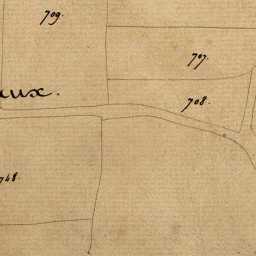 709.
707.
708.
aux.
748.